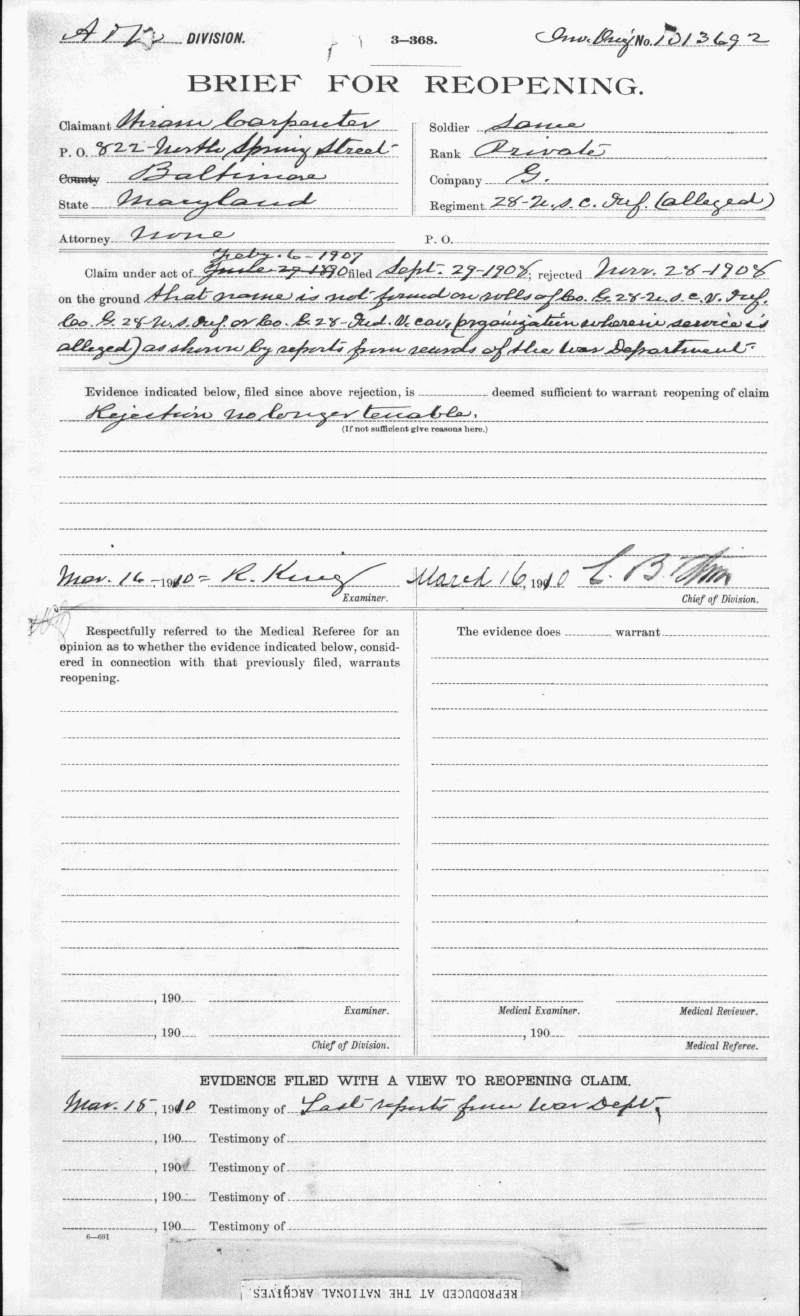 DIVISION. 3—368. No. 1013692
BRIEF FOR REOPENING.
Claimant Hiram Carpenter
P. O. 822 North Spring Street
County Baltimore
State Maryland
Soldier Same
Rank Private
Company G.
Regiment 28-U.S.C. Inf. (alleged)
Attorney None P. O.
Feby. 6-1907
Claim under act of June 27 1890 filed Sept. 29-1908; rejected Nov. 28-1908
on the ground that name is not found on rolls of Co. G. 28-U.S.C.V. Inf.
Co. G. 28 U.S. Inf. or Co. G. 28- Ind. V. cav, (organization wherein service is
alleged) as shown by reports from records of the War Department.
Evidence indicated below, filed since above rejection, is deemed sufficient to warrant reopening of claim
Rejection no longer tenable.
(If not sufficient give reasons here.)
Mar. 16-, 1910= R. King
Examiner.
March 16, 1910 C. B.
Chief of Division.
Respectfully referred to the Medical Referee for an
opinion as to whether the evidence indicated below, consid-
ered in connection with that previously filed, warrants
reopening.
The evidence does warrant
, 190
Examiner.
, 190
Chief of Division.
Medical Examiner. Medical Reviewer.
, 190
Medical Referee.
EVIDENCE FILED WITH A VIEW TO REOPENING CLAIM.
Mar. 15, 1910 Testimony of Last reports from War Dept.
, 190 Testimony of
, 190 Testimony of
, 190 Testimony of
, 190 Testimony of
6—691
REPRODUCED AT THE NATIONAL ARCHIVES